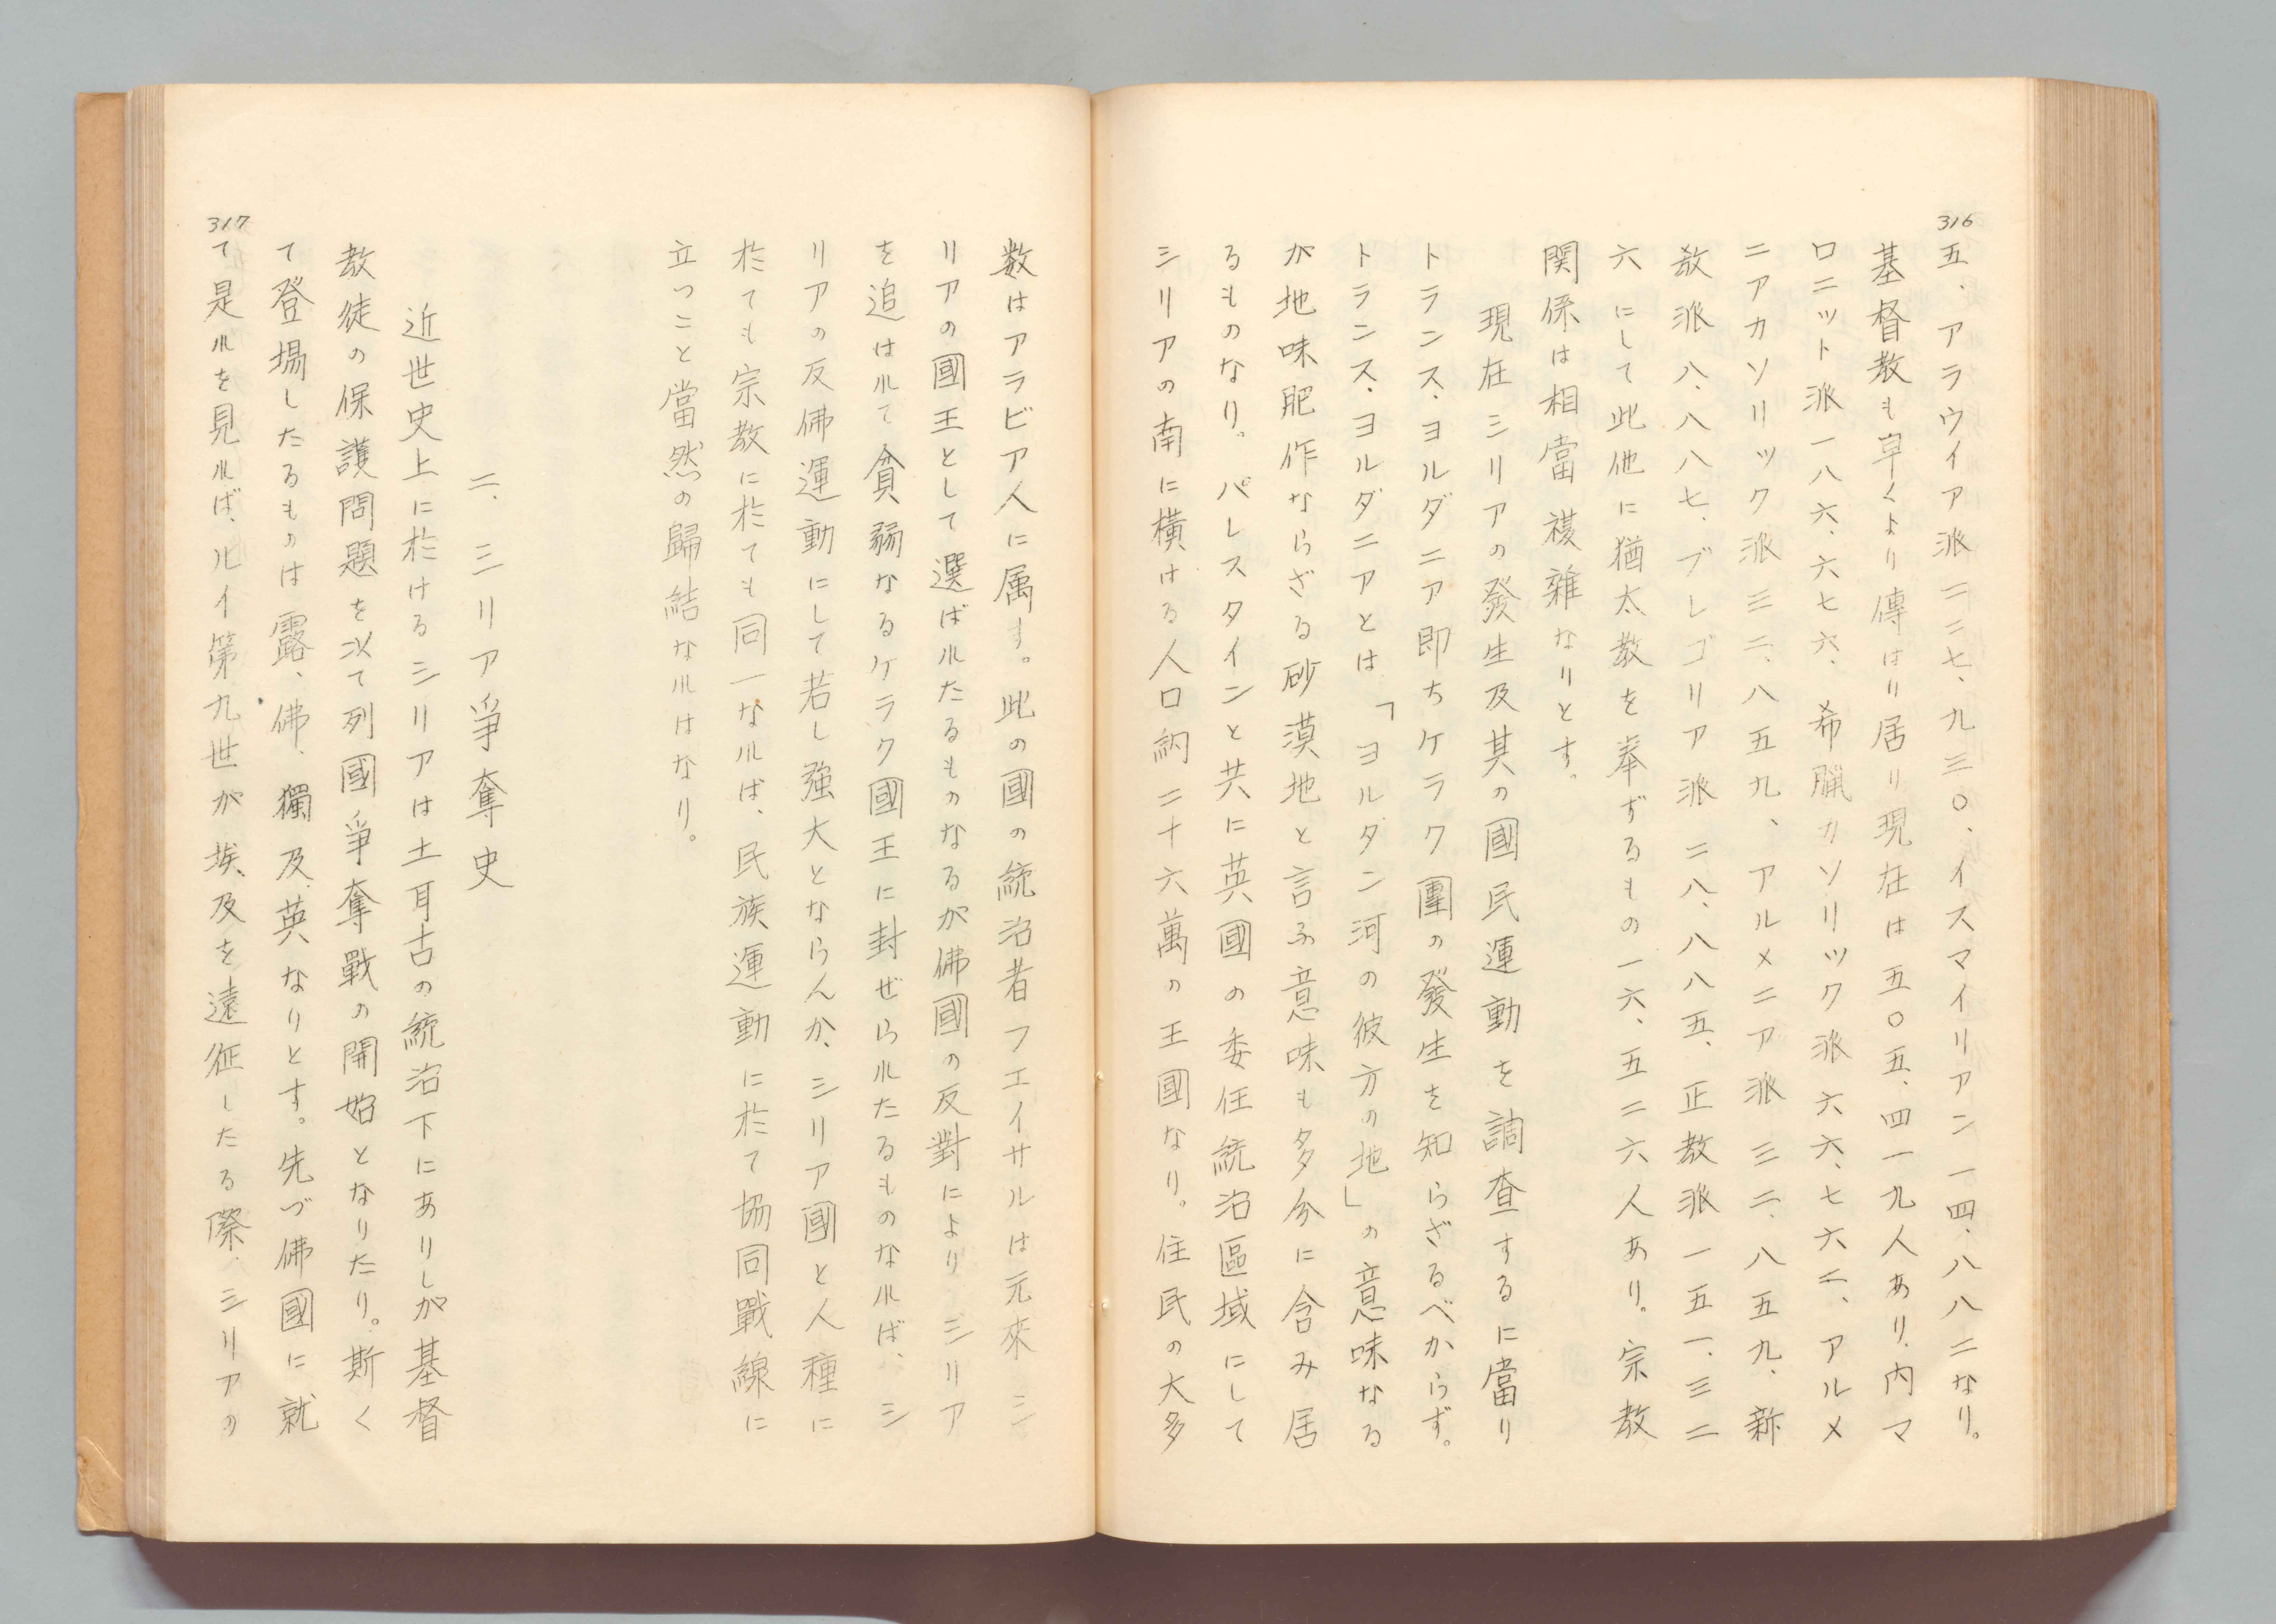 316
五、アラウイア派二二七、九三〇、イスマイリアン一四、八八二なり。
基督教も早くより傳はり居り現在は五〇五、四一九人あり、内マ
ロニット派一八六、六七六、希臘カソリック派六六、七六二、アルメ
ニアカソリック派三二、八五九、アルメニア派三二、八五九、新
教派八、八八七、ブレゴリア派二八、八八五、正教派一五一、三二
六にして此他に猶太教を奉ずるもの一六、五二六人あり。宗教
関係は相當複雜なりとす。
現在シリアの發生及其の國民運動を調査するに當り
トランス、ヨルダニア即ちケラク團の發生を知らざるべからず。
トランス、ヨルダニアとは「ヨルダン河の彼方の地」の意味なる
が地味肥作ならざる砂漠地と言ふ意味も多分に含み居
るものなり。パレスタインと共に英國の委任統治區域にして
シリアの南に横はる人口約二十六萬の王國なり。住民の大多
数はアラビア人に属す。此の國の統治者フエイサルは元來シ
リアの國王として選ばれたるものなるが佛國の反對によりシリア
を追はれて貧弱なるケラク國王に封ぜられたるものなれば、シ
リアの反佛運動にして若し強大とならんか、シリア國と人種に
於ても宗教に於ても同一なれば、民族運動に於て協同戰線に
立つこと當然の歸結なればなり。
二、シリア爭奪史
近世史上に於けるシリアは土耳古の統治下にありしが基督
教徒の保護問題を以て列國爭奪戰の開始となりたり。斯く
て登場したるものは露、佛、獨及英なりとす。先づ佛國に就
317
て是れを見れば、ルイ第九世が埃及を遠征したる際、シリアの